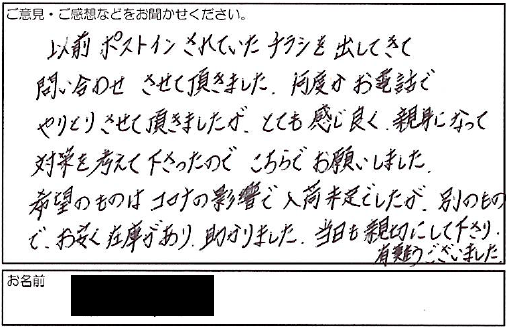 ご意見・ご感想などをお聞かせください。
以前ポストインされていたチラシを出してきて
問い合わせさせて頂きました。何度かお電話で
やりとりさせて頂きましたが、とても感じ良く、親身になって
対策を考えて下さったのでこちらでお願いしました。
希望のものはコロナの影響で入荷未定でしたが、別のもの
で、お安く在庫があり、助かりました。当日も親切にして下さり、
有難うございました。
お名前